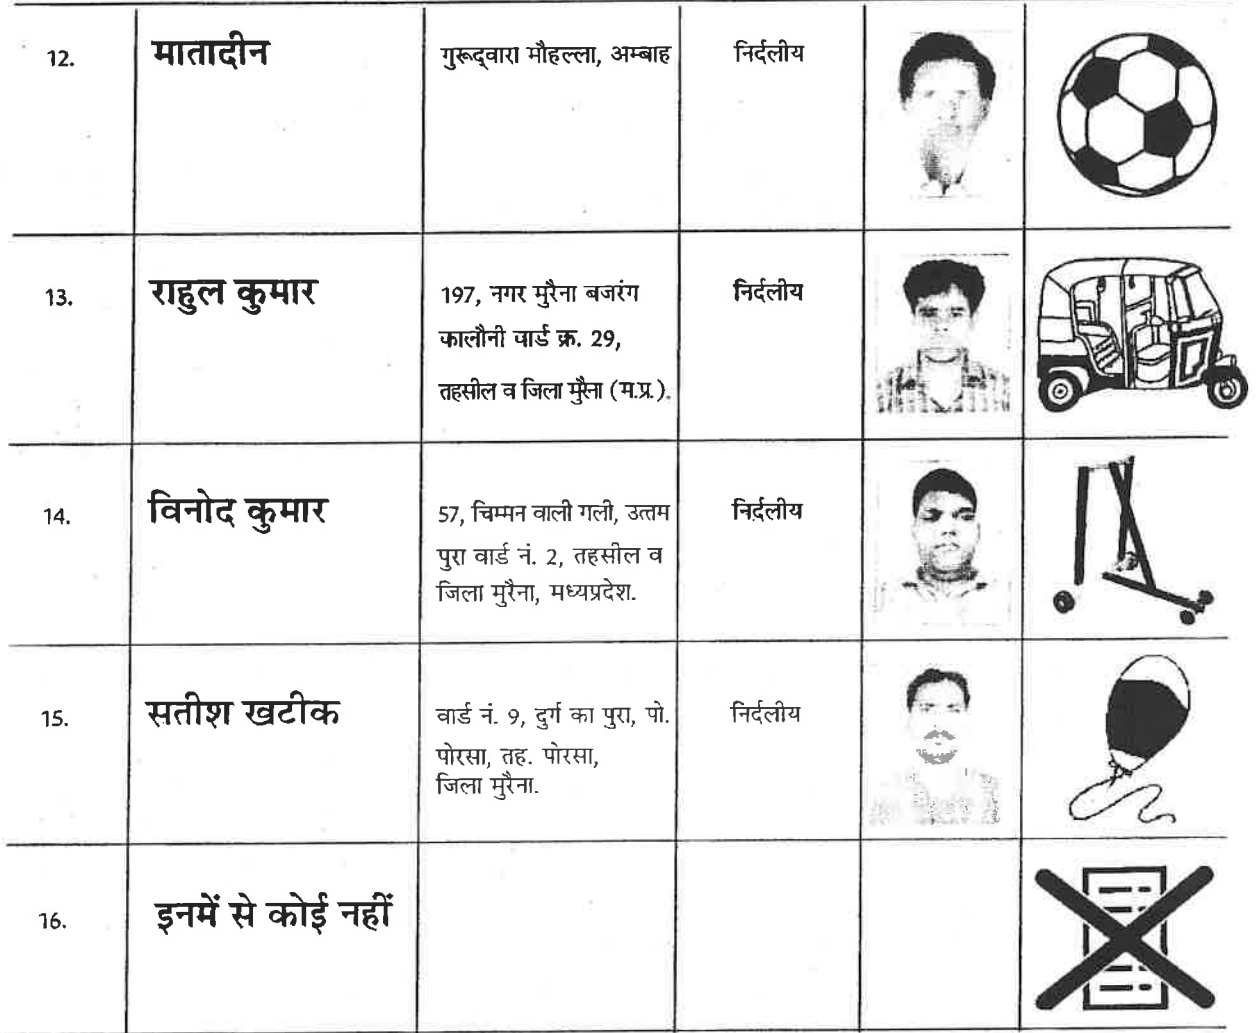 12. मातादीन गुरूद्वारा मौहल्ला, अम्बाह निर्दलीय
13. राहुल कुमार 197, नगर मुरैना बजरंग निर्दलीय
कालौनी वार्ड क्र. 29,
तहसील व जिला मुरैना (म.प्र.).
14. विनोद कुमार 57, चिम्मन वाली गली, उत्तम निर्दलीय
पुरा वार्ड नं. 2, तहसील व
जिला मुरैना, मध्यप्रदेश.
15. सतीश खटीक वार्ड नं. 9, दुर्ग का पुरा, पो. निर्दलीय
पोरसा, तह. पोरसा,
जिला मुरैना.
16. इनमें से कोई नहीं